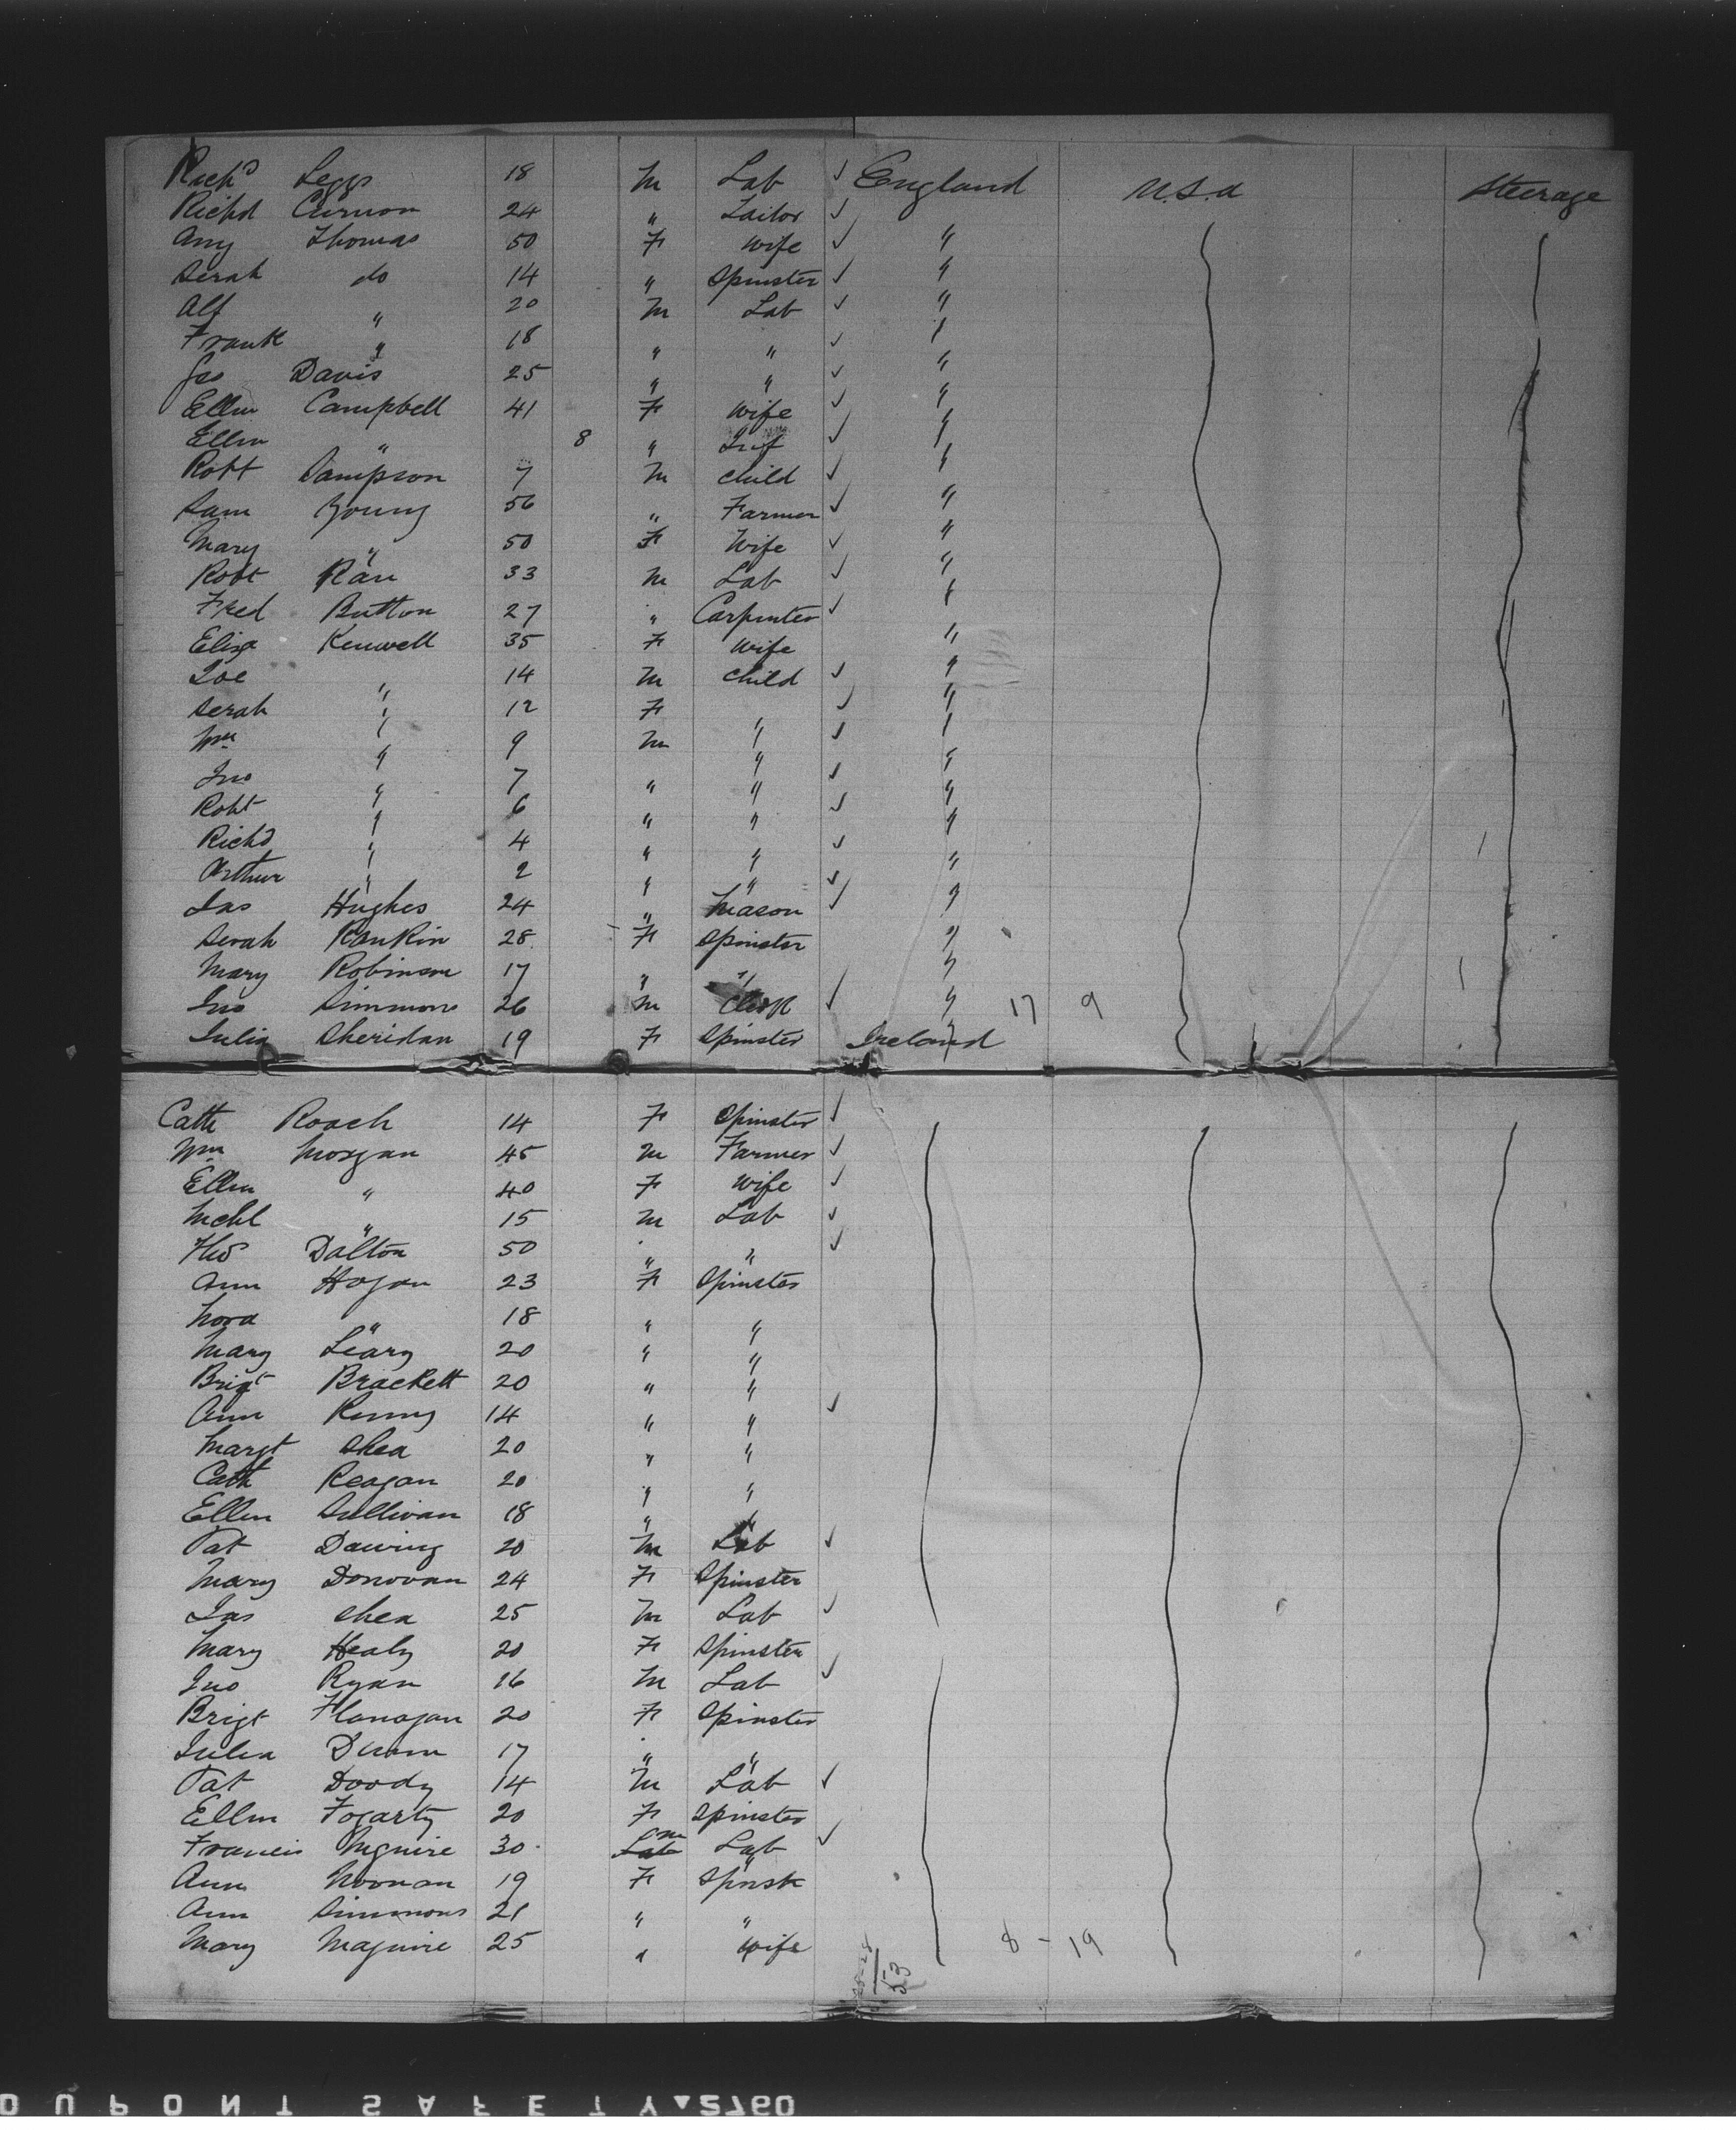 Richd Legge 18 M Lab ✓ England U.S.A Steerage
Richd Curnon 24 " Tailor ✓
Any Thomas 50 F Wife ✓ "
Serah do 14 " Spinster ✓ "
Alf " 20 M Lab ✓ "
Frank " 18 " " ✓ "
Jno Davis 25 " " ✓ "
Ellen Campbell 41 F Wife ✓ "
Ellen " 8 " Inf ✓ "
Robt Sampson 7 M Child ✓ "
Sam Young 56 " Farmer ✓ "
Mary " 50 F Wife ✓ "
Robt 33 M Lab ✓ "
Fred Button 27 " Carpenter ✓ "
Eliza Kenwell 35 F Wife "
Joe " 14 M Child ✓ "
Serah " 12 F " ✓ "
Wm " 9 M " ✓ "
Jno " 7 " " ✓ "
Robt " 6 " " ✓ "
Richd " 4 " " ✓ "
Arthur " 2 " " ✓ "
Jas Hughes 24 " Mason ✓ "
Serah Rankin 28 F Spinster "
Mary Robinson 17 " " "
Jno Simmons 26 M Clerk ✓ " 17 9
Julia Sheridan 19 F Spinster Ireland
Cath Roach 14 F Spinster ✓
Wm Morgan 45 M Farmer ✓
Ellen " 40 F Wife ✓
Mchl " 15 M Lab ✓
Thos Dalton 50 " " ✓
Ann Hogan 23 F Spinster
Nora " 18 " "
Mary Leary 20 " "
Brigt Brackett 20 " "
Ann Kenny 14 " " ✓
Margt Shea 20 " "
Cath Reagan 20 " "
Ellen Sullivan 18 " "
Pat 20 M Lab ✓
Mary Donovan 24 F Spinster
Jas Shea 25 M Lab ✓
Mary Healy 20 F Spinster
Jno Ryan 16 M Lab ✓
Brigt Flanagan 20 F Spinster
Julia Dunn 17 " "
Pat Doody 14 M Lab ✓
Ellen Fogarty 20 F Spinster
Francis Mguire 30 Lab M Lab ✓
Ann Noonan 19 F Spinst
Ann Simmons 21 " "
Mary Maguire 25 " Wife 8 - 19
53
DUPONT SAFETY 2760